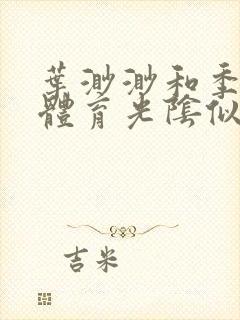 葉渺渺和季
體育光陰似
吉米